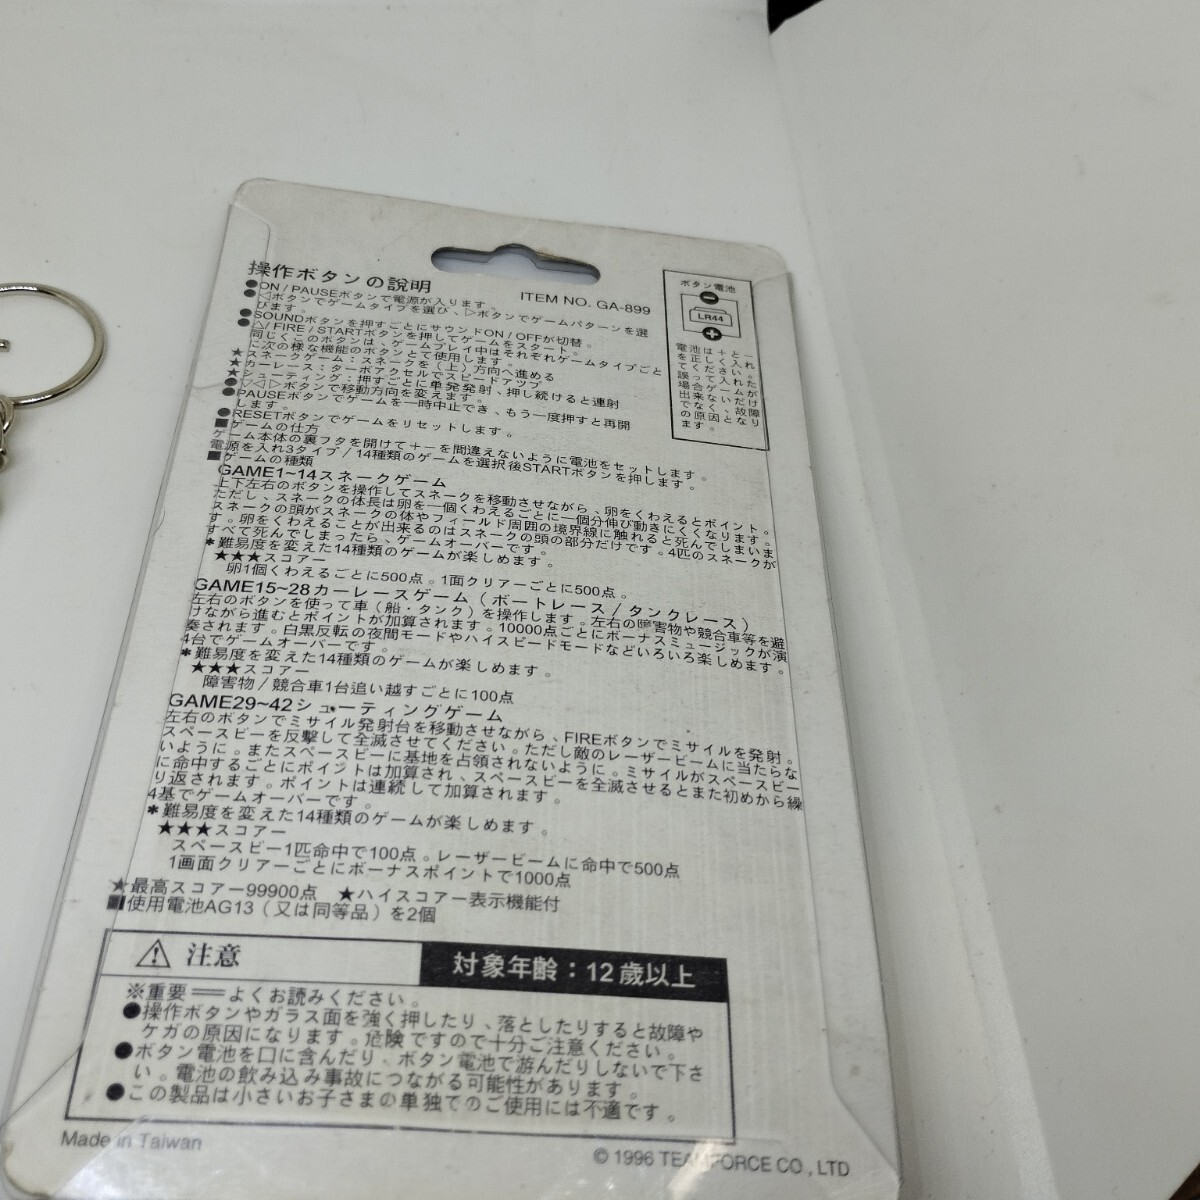 操作ボタンの説明
ITEM NO. GA-899
●ON / PAUSEボタンで電源が入ります。
●◁ボタンでゲームタイプを選び、▷ボタンでゲームパターンを選
びます。
●SOUNDボタンを押すごとにサウンドON / OFFが切替。
●△/ FIRE / STARTボタンを押してゲームをスタート。
同じくこのボタンは、ゲームプレイ中はそれぞれゲームタイプごと
に次の様な機能のボタンとて使用します。
★スネークゲーム：スネークを（上）方向へ進める
★カーレース：ターボアクセルでスピードアップ
★シューティング：押すごとに単発発射、押し続けると連射
●▽◁▷ボタンで移動方向を変えます。
●PAUSEボタンでゲームを一時中止でき、もう一度押すと再開
します。
●RESETボタンでゲームをリセットします。
■ゲームの仕方
ゲーム本体の裏フタを開けて＋－を間違えないように電池をセットします。
電源を入れ3タイプ / 14種類のゲームを選択後STARTボタンを押します。
■ゲームの種類
GAME1~14スネークゲーム
上下左右のボタンを操作してスネークを移動させながら、卵をくわえるとポイント。
ただし、スネークの体長は卵を一個くわえるごとに一個分伸び動きにくくなります。
スネークの頭がスネークの体やフィールド周囲の境界線に触れると死んでしまいま
す。卵をくわえることが出来るのはスネークの頭の部分だけです。4匹のスネークが
すべて死んでしまったら、ゲームオーバーです。
＊難易度を変えた14種類のゲームが楽しめます。
★★★スコアー
卵1個くわえるごとに500点。1面クリアーごとに500点。
GAME15~28カーレースゲーム（ボートレース / タンクレース）
左右のボタンを使って車（船・タンク）を操作します。左右の障害物や競合車等を避
けながら進むとポイントが加算されます。10000点ごとにボーナスミュージックが演
奏されます。白黒反転の夜間モードやハイスピードモードなどいろいろ楽しめます。
4台でゲームオーバーです。
＊難易度を変えた14種類のゲームが楽しめます。
★★★スコアー
障害物 / 競合車1台追い越すごとに100点
GAME29~42シューティングゲーム
左右のボタンでミサイル発射台を移動させながら、FIREボタンでミサイルを発射。
スペースビーを反撃して全滅させてください。ただし敵のレーザービームに当たらな
いように。またスペースビーに基地を占領されないように。ミサイルがスペースビー
に命中するごとにポイントは加算され、スペースビーを全滅させるとまた初めから繰
り返されます。ポイントは連続して加算されます。
4基でゲームオーバーです。
＊難易度を変えた14種類のゲームが楽しめます。
★★★スコアー
スペースビー1匹命中で100点。レーザービームに命中で500点
1画面クリアーごとにボーナスポイントで1000点
★最高スコアー99900点　★ハイスコアー表示機能付
■使用電池AG13（又は同等品）を2個
ボタン電池
LR44
電池は＋と－
を正しく入れ
てください。
誤って入れた
場合ゲームが
出来ないだけ
でなく、故障
の原因となり
ます。
注意
対象年齢：12歳以上
※重要＝＝よくお読みください。
●操作ボタンやガラス面を強く押したり、落としたりすると故障や
ケガの原因になります。危険ですので十分ご注意ください。
●ボタン電池を口に含んだり、ボタン電池で游んだりしないで下さ
い。電池の飲み込み事故につながる可能性があります。
●この製品は小さいお子さまの単独でのご使用には不適です。
Made in Taiwan
© 1996 TEAMFORCE CO., LTD